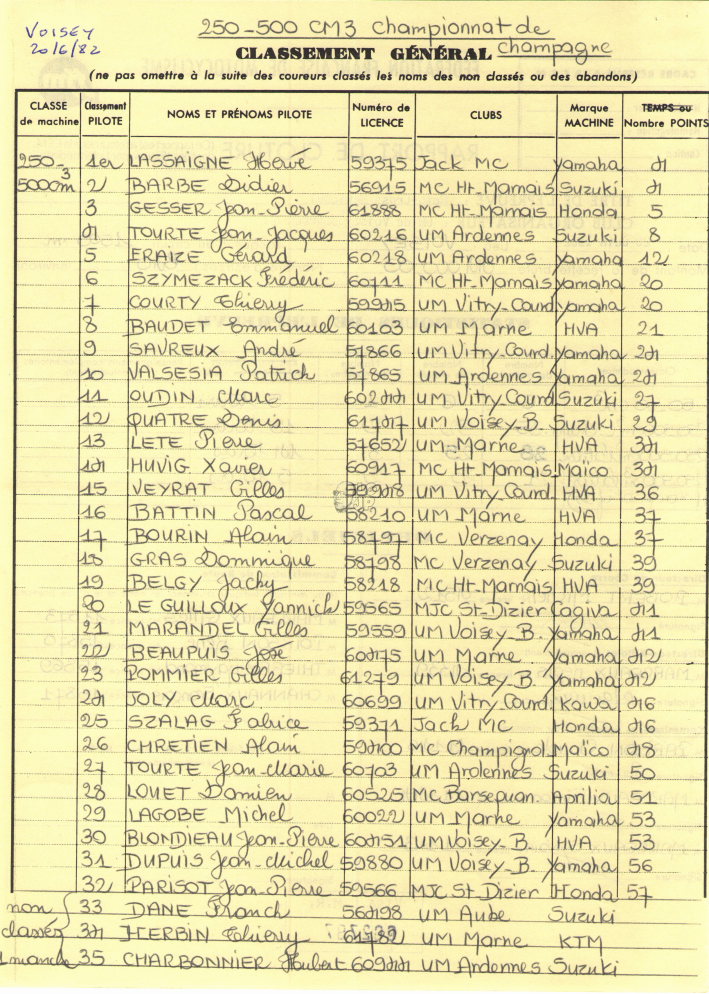 VOISEY 250-500 CM3 Championnat de
20/6/82 CLASSEMENT GÉNÉRAL champagne
(ne pas omettre à la suite des coureurs classés les noms des non classés ou des abandons)
CLASSE de machine Classement PILOTE NOMS ET PRÉNOMS PILOTE Numéro de LICENCE CLUBS Marque MACHINE TEMPS ou Nombre POINTS
250- 1er LASSAIGNE Hervé 59375 Jack MC Yamaha 4
500cm3 2 BARBE Didier 56915 MC Ht-Marnais Suzuki 4
3 GESSER Jean-Pierre 61888 MC Ht-Marnais Honda 5
4 TOURTE Jean-Jacques 60216 UM Ardennes Suzuki 8
5 ERAIZE Gérard 60218 UM Ardennes Yamaha 12
6 SZYMEZACK Frédéric 60711 MC Ht-Marnais Yamaha 20
7 COURTY Thierry 59945 UM Vitry-Courd Yamaha 20
8 BAUDET Emmanuel 60103 UM Marne HVA 21
9 SAVREUX André 57866 UM Vitry.Courd. Yamaha 24
10 VALSESIA Patrick 57865 UM Ardennes Yamaha 24
11 OUDIN Marc 60244 UM Vitry.Courd Suzuki 27
12 QUATRE Denis 61747 UM Voisey-B. Suzuki 29
13 LETE Pierre 57652 UM Marne HVA 34
14 HUVIG Xavier 60917 MC Ht-Marnais Maïco 34
15 VEYRAT Gilles 59948 UM Vitry.Courd. HVA 36
16 BATTIN Pascal 58210 UM Marne HVA 37
17 BOURIN Alain 58797 MC Verzenay Honda 37
18 GRAS Dominique 58798 MC Verzenay Suzuki 39
19 BELGY Jacky 58218 MC Ht-Marnais HVA 39
20 LE GUILLOUX Yannick 59565 MJC St-Dizier Cagiva 41
21 MARANDEL Gilles 59559 UM Voisey-B. Yamaha 41
22 BEAUPUIS José 60475 UM Marne Yamaha 42
23 POMMIER Gilles 61279 UM Voisey-B. Yamaha 42
24 JOLY Marc 60699 UM Vitry.Courd. Kawa 46
25 SZALAG Fabrice 59371 Jack MC Honda 46
26 CHRETIEN Alain 59400 MC Champignol Maïco 48
27 TOURTE Jean-Marie 60703 UM Ardennes Suzuki 50
28 LOUET Damien 60525 MC Barsequan Aprilia 51
29 LAGOBE Michel 60022 UM Marne Yamaha 53
30 BLONDIEAU Jean-Pierre 60451 UM Voisey-B. HVA 53
31 DUPUIS Jean-Michel 59880 UM Voisey-B. Yamaha 56
32 PARISOT Jean-Pierre 59566 MJC St-Dizier Honda 57
non 33 DANE Franck 56498 UM Aube Suzuki
classés 34 HERBIN Thierry 61782 UM Marne KTM
1 manche 35 CHARBONNIER Hubert 60944 UM Ardennes Suzuki